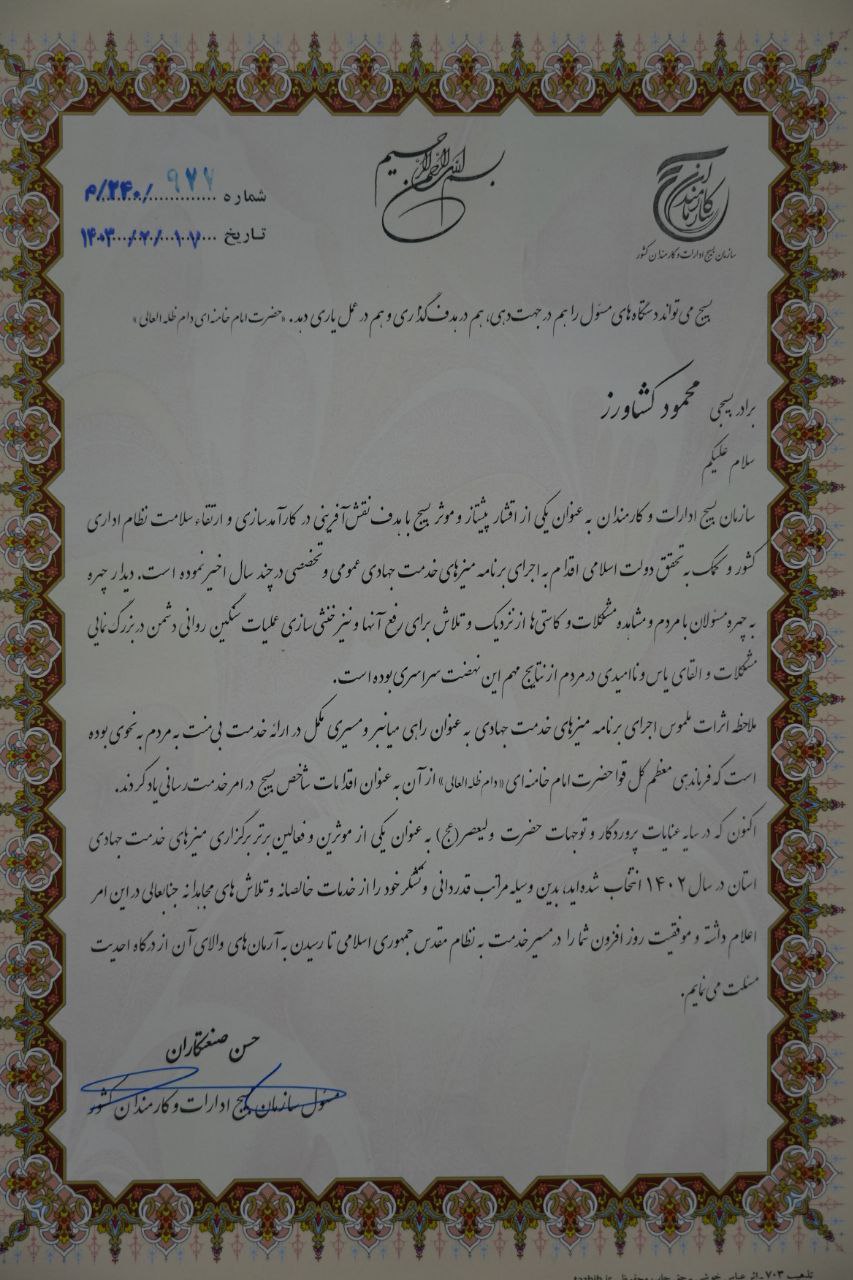 بسم الله الرحمن الرحیم
کارمندان
سازمان بسیج ادارات و کارمندان کشور
شماره ۹۷۷/۲۴۰/م
تاریخ ۱۴۰۳/۷/۱۷
بسیج می‌تواند دستگاه‌های مسئول را هم در جهت دهی، هم در هدف گذاری و هم در عمل یاری دهد. «حضرت امام خامنه‌ای دام ظله العالی»
برادر بسیجی محمود کشاورز
سلام علیکم
سازمان بسیج ادارات و کارمندان به عنوان یکی از اقشار پیشتاز و موثر بسیج با هدف نقش آفرینی در کارآمدسازی و ارتقاء سلامت نظام اداری
کشور و کمک به تحقق دولت اسلامی اقدام به اجرای برنامه میزهای خدمت جهادی عمومی و تخصصی در چند سال اخیر نموده است. دیدار چهره
به چهره مسئولان با مردم و مشاهده مشکلات و کاستی‌ها از نزدیک و تلاش برای رفع آنها و نیز خنثی سازی عملیات سنگین روانی دشمن در بزرگ نمایی
مشکلات و القای یاس و ناامیدی در مردم از نتایج مهم این نهضت سراسری بوده است.
ملاحظه اثرات ملموس اجرای برنامه میزهای خدمت جهادی به عنوان راهی میانبر و مسیری مکمل در ارائه خدمت بی‌منت به مردم به نحوی بوده
است که فرماندهی معظم کل قوا حضرت امام خامنه‌ای «دام ظله العالی» از آن به عنوان اقدامات شاخص بسیج در امر خدمت رسانی یاد کردند.
اکنون که در سایه عنایات پروردگار و توجهات حضرت ولیعصر(عج) به عنوان یکی از موثرین و فعالین برتر برگزاری میزهای خدمت جهادی
استان در سال ۱۴۰۲ انتخاب شده‌اید، بدین وسیله مراتب قدردانی و تشکر خود را از خدمات خالصانه و تلاش‌های مجاهدانه جنابعالی در این امر
اعلام داشته و موفقیت روز افزون شما را در مسیر خدمت به نظام مقدس جمهوری اسلامی تا رسیدن به آرمان‌های والای آن از درگاه احدیت
مسئلت می‌نمایم.
حسن صنعتکاران
مسئول سازمان بسیج ادارات و کارمندان کشور